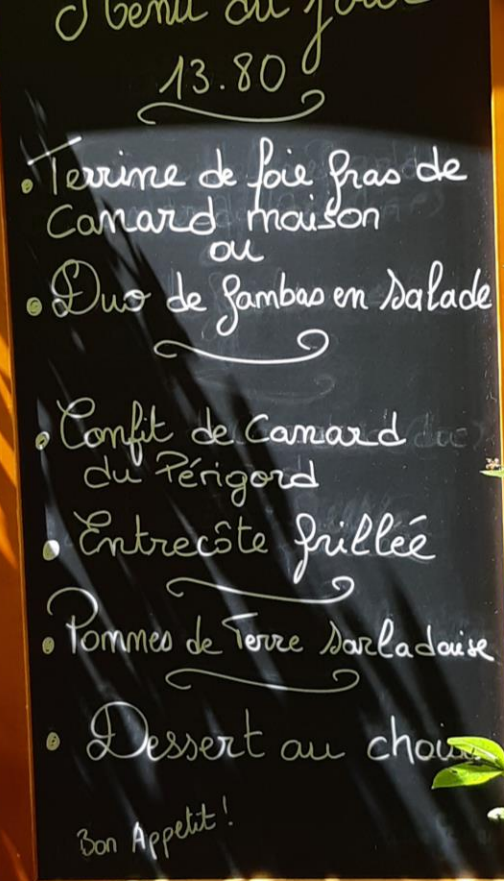 Menu du jour
13.80
• Terrine de foie gras de
Canard maison
ou
• Duo de gambas en salade
• Confit de Canard
du Périgord
• Entrecôte grillée
• Pommes de Terre sarladaise
• Dessert au choix
Bon Appetit!